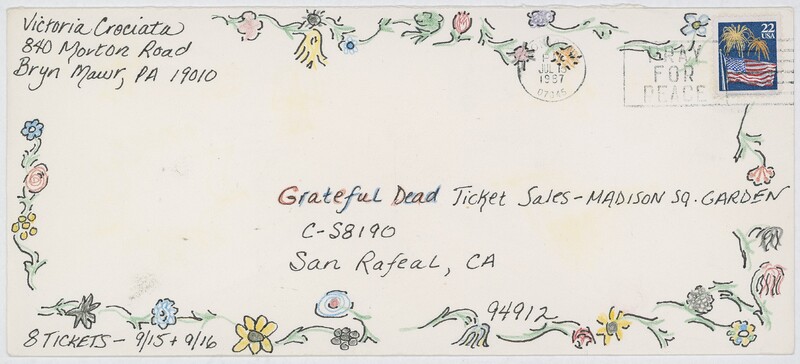 Victoria Crociata
840 Morton Road
Bryn Mawr, PA 19010
JUL 13
1987
07345
PRAY
FOR
PEACE
22
USA
Grateful Dead Ticket Sales - MADISON SQ. GARDEN
C-S8190
San Rafeal, CA
94912
8 TICKETS - 9/15 + 9/16